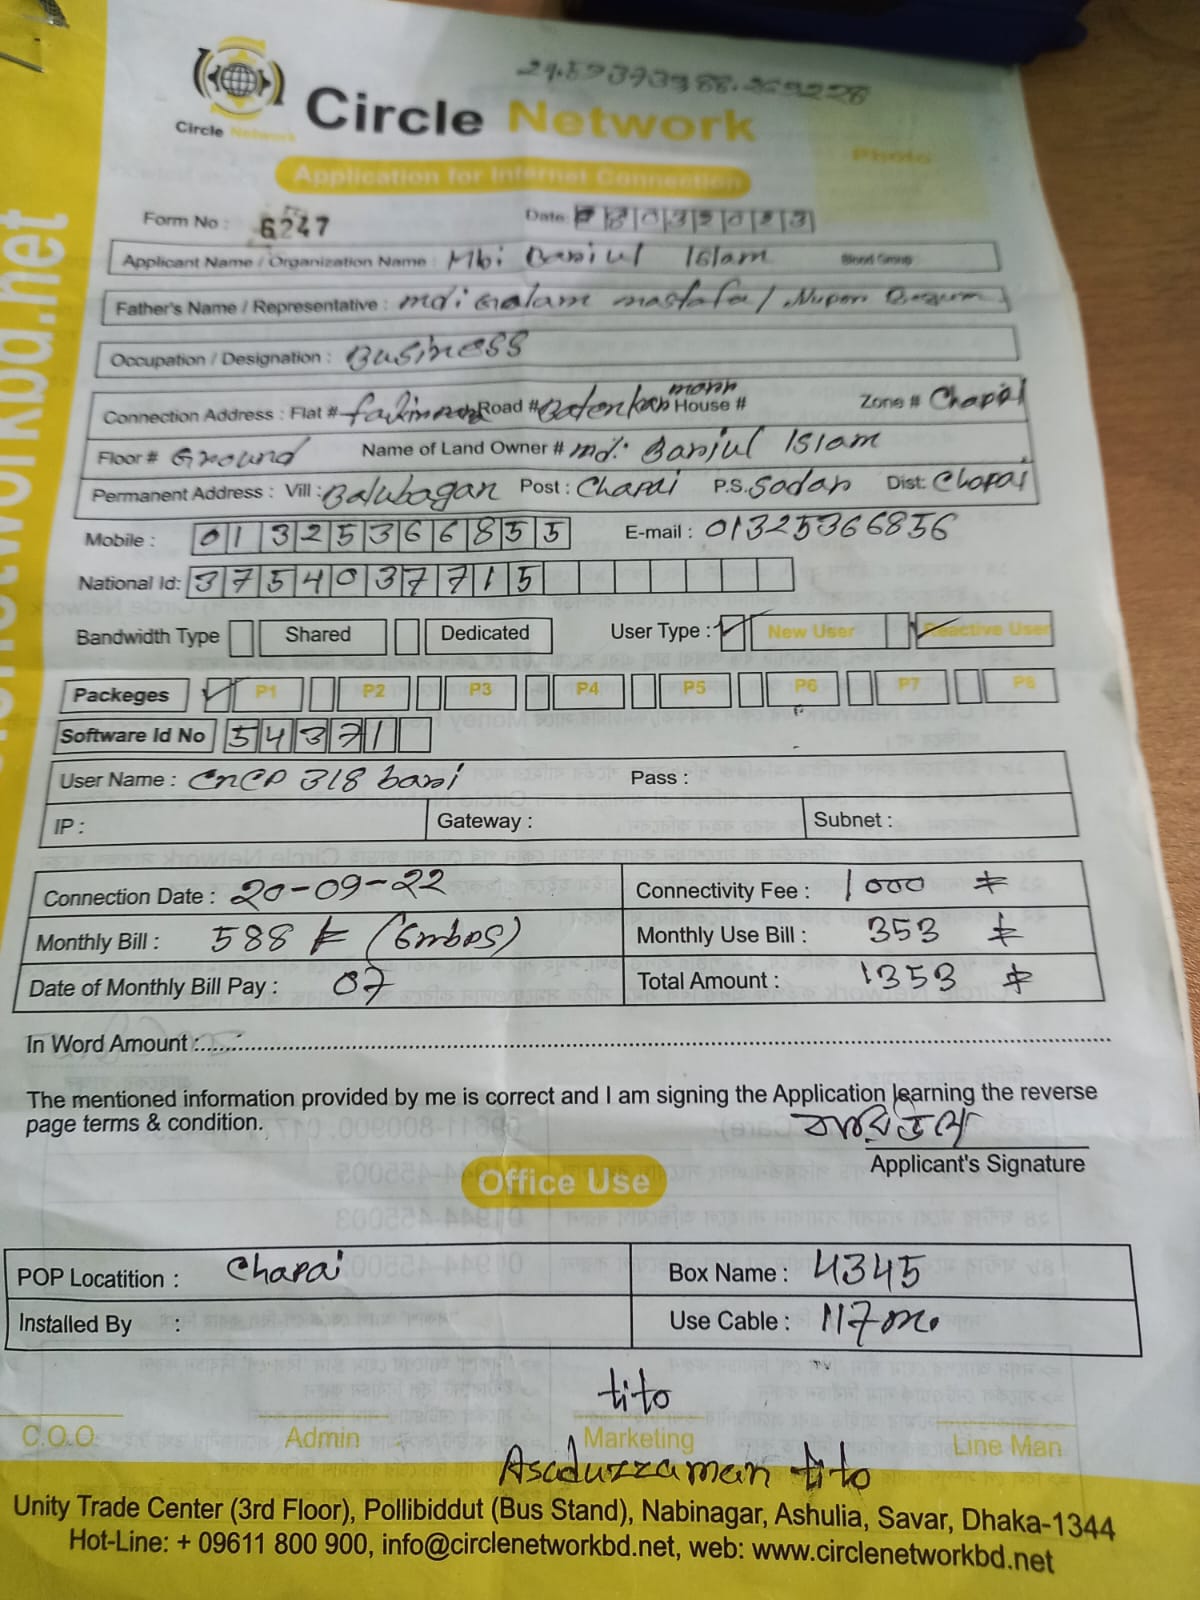 Circle Network
Circle Network
Application for Internet Connection
Photo
Form No : 6247
Date:
Applicant Name / Organization Name : Islam Blood Group
Father's Name / Representative :
Occupation / Designation : Business
Connection Address : Flat # Road # House # Zone # Chapai
Floor # Ground Name of Land Owner # md: Islam
Permanent Address : Vill : Balubagan Post : Chapai P.S. Sadar Dist: Chapai
Mobile : 01325366855 E-mail : 01325366856
National Id: 3754037715
Bandwidth Type Shared Dedicated User Type : New User Reactive User
Packeges P1 P2 P3 P4 P5 P6 P7 P8
Software Id No 54371
User Name : 318 bari Pass :
IP : Gateway : Subnet :
Connection Date : 20-09-22 Connectivity Fee : 1000
Monthly Bill : 588 Monthly Use Bill : 353
Date of Monthly Bill Pay : 07 Total Amount : 1353
In Word Amount :
The mentioned information provided by me is correct and I am signing the Application learning the reverse
page terms & condition.
Applicant's Signature
Office Use
POP Locatition : Chapai Box Name : 4345
Installed By : Use Cable : 117m.
tito
C.O.O Admin Marketing Line Man
Asaduzzaman tito
Unity Trade Center (3rd Floor), Pollibiddut (Bus Stand), Nabinagar, Ashulia, Savar, Dhaka-1344
Hot-Line: + 09611 800 900, info@circlenetworkbd.net, web: www.circlenetworkbd.net